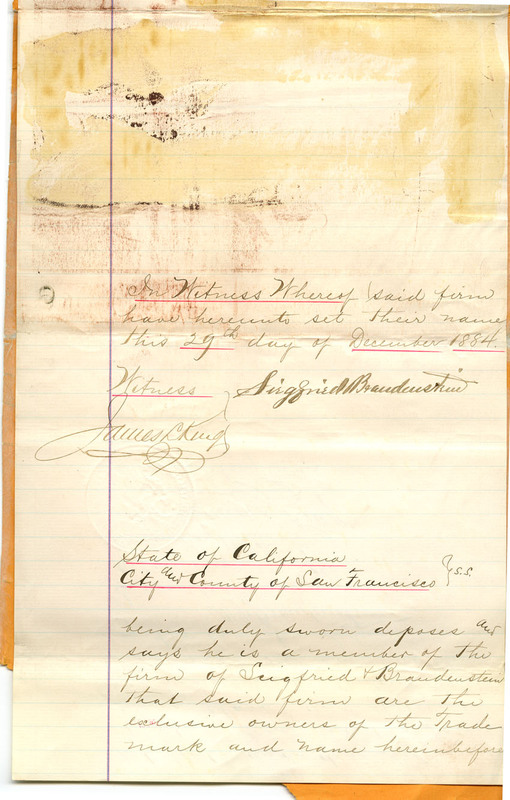 In Witness Whereof said firm
have hereunto set their name
this 29th day of December 1884.
Witness Siegfried & Brandenstein
James L King
State of California
City and County of San Francisco } S.S.
being duly sworn deposes and
says he is a member of the
firm of Seigfried & Brandenstein
that said firm are the
exclusive owners of the Trade
mark and name hereinbefore